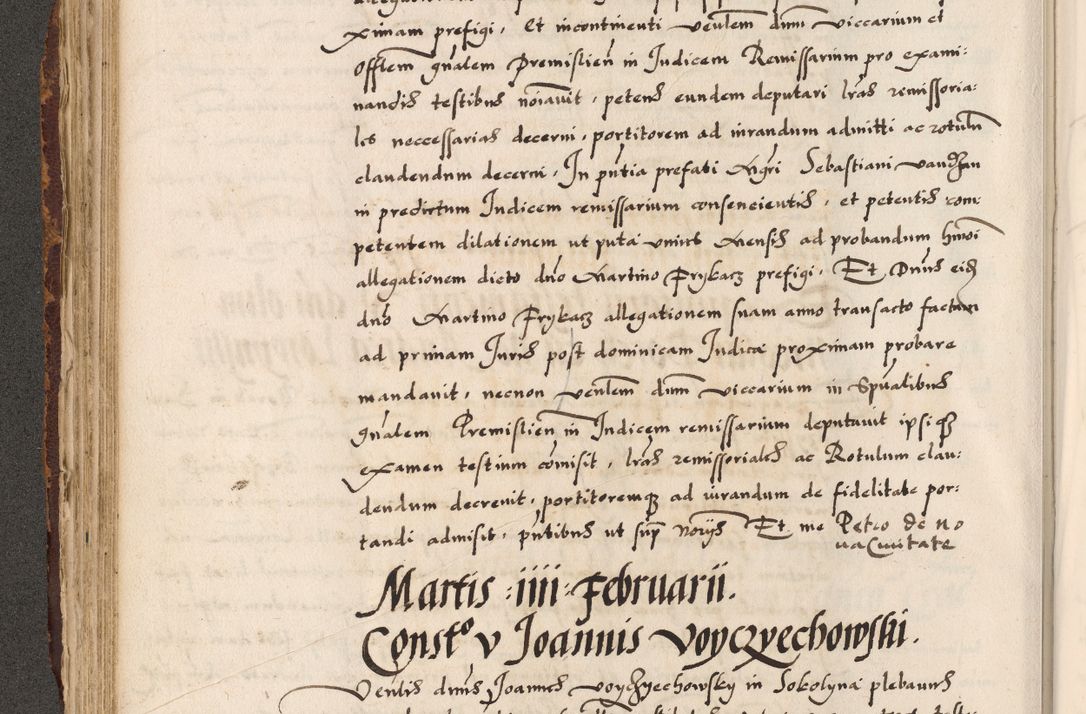 ximam prefigi, Et incontinenti veñlem dnm viccarium et
Offlem gñalem Premislien̄ in Iudicem Remissarium pro exami:
nandis testibus noīavit, petens eundem deputari l̄ras remissoria:
les neccessarias decerni, portitorem ad iurandum admitti ac rotulū
claudendum decerni, In pn̄tia prefati Mgri Sebastiani
in predictum Iudicem remissarium consencientis, et petentis com:
petentem dilationem ut puta unius Mensis ad probandum hmōi
allegationem dicto dno Martino Frykacz prefigi, Et Dnus eid
dno Martino Frykacz allegationem suam anno transacto factam
ad primam Iuris post dominicam Iudica proximam probare
mandavit, necnon veñlem dnm viccarium in Spūalibus
gñalem Premislien̄ in Iudicem remissarium deputavit ipsiq3
examen testium com̄isit, l̄ras remissoriales ac Rotulum clau:
dendum decrevit, portitoremq3 ad iurandum de fidelitate por:
tandi admisit, pn̄tibus ut sup̄ Norijs Et me Petro de No
va Civitate
Martis : iiii : Februarii.
Constᵒ v Ioannis Voyczyechowski.
Veñlis dnus Joannes Voyczyechowsky in Sokolyna plebanus